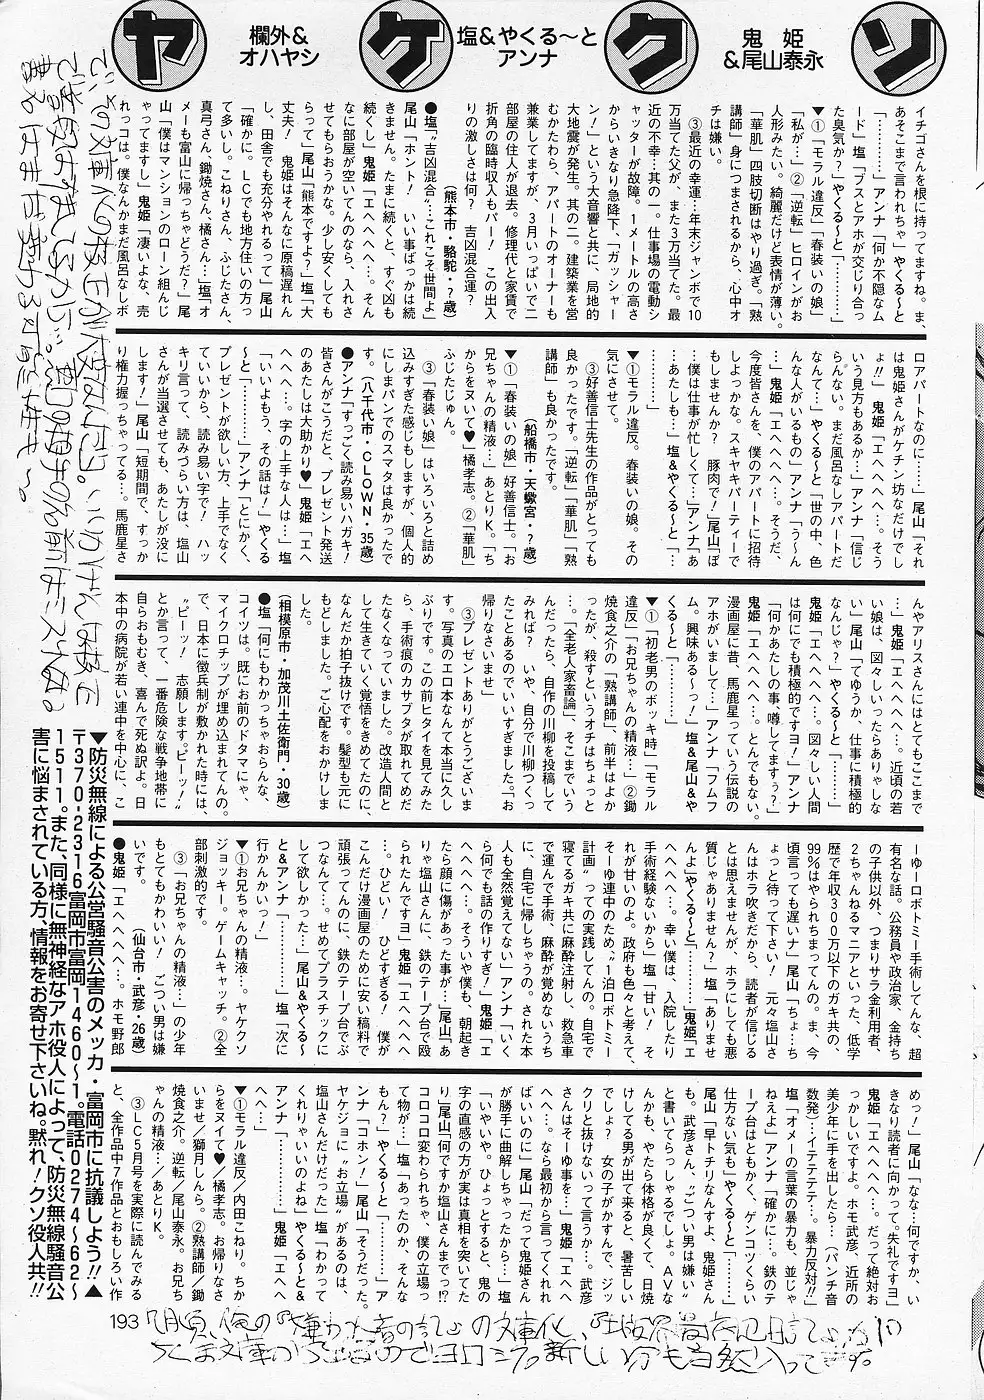 ソ
鬼姫
&尾山泰永
ク
塩&やくる〜と
アンナ
ケ
欄外&
オハヤシ
ヤ
イチゴさんを根に持ってますね。ま、
あそこまで言われちゃ」やくる〜と
「…………」アンナ「何か不隠なム
ード」塩「ブスとアホが交じり合っ
た臭気か?」やくる〜と「………」
▼①「モラル違反」「春装いの娘」
「私が…」②「逆転」ヒロインがお
人形みたい。綺麗だけど表情が薄い。
「華肌」四肢切断はやり過ぎ。「熟
講師」身につまされるから、心中オ
チは嫌い。
③最近の幸運…年末ジャンボで10
万当てた父が、また3万当てた。最
近の不幸…其の一。仕事場の電動シ
ャッターが故障。1メートルの高さ
からいきなり急降下、「ガッシャー
ン!」という大音響と共に、局地的
大地震が発生。其の二。建築業を営
むかたわら、アパートのオーナーも
兼業してますが、3月いっぱいで二
部屋の住人が退去。修理代と家賃で
折角の臨時収入もパー! この出入
りの激しさは何? 吉凶混合運?
(熊本市・駱駝・?歳)
●塩「〝吉凶混合〟…これこそ世間よ」
尾山「ホント! いい事ばっかは続
きません。たまに続くと、すぐ凶も
続くし」鬼姫「エヘヘヘヘ…。そん
なに部屋が空いてんのなら、入れさ
せてもらおうかな。少し安くしても
らって」尾山「熊本ですよ」塩「大
丈夫! 鬼姫はそんなに原稿遅れん
し、田舎でも充分やれるって」尾山
「確かに。LCでも地方住いの方っ
て多いし。こねりさん、ふじたさん、
真弓さん、鋤焼さん、橘さん…」塩「オ
メーも富山に帰っちゃどうだ?」尾
山「僕はマンションのローン組んじ
ゃってますし」鬼姫「凄いよな、売
れっコは。僕なんかまだ風呂なしボ
ロアパートなのに……」尾山「それ
は鬼姫さんがケチン坊なだけでし
ょ!!」鬼姫「エヘヘヘヘ…。そう
いう見方もあるか…」アンナ「信じ
らんない。まだ風呂なしアパートだ
なんて…」やくる〜と「世の中、色
んな人がいるもの」アンナ「う〜ん
…」鬼姫「エヘヘヘヘ…。そうだ、
今度皆さんを、僕のアパートに招待
しよっかな。スキヤキパーティーで
もしませんか? 豚肉で!」尾山「ぼ
、僕は仕事が忙しくて…」アンナ「あ
…あたしも…」塩&やくる〜と「…
…………」
▼①モラル違反。春装いの娘。その
気にさせて。
③好善信士先生の作品がとっても
良かったです。「逆転」「華肌」「熟
講師」も良かったです。
(船橋市・天蠍宮・?歳)
▼①「春装いの娘」好善信士。「お
兄ちゃんの精液…」あとりK。「ち
からをヌいて♥」橘孝志。②「華肌」
ふじたじゅん。
③「春装い娘」はいろいろと詰め
込みすぎた感じもしますが、個人的
にしまパンでのスマタは良かったで
す。(八千代市・CLOWN・35歳)
●アンナ「すっごく読み易いハガキ!
皆さんがこうだと、プレゼント発送
のあたしは大助かり♥」鬼姫「エヘ
ヘヘヘ…。字の上手な人は…」塩
「いいよもう、その話は!」やくる
〜と「…………」アンナ「とにかく、
プレゼントが欲しい方、上手でなく
ていいから、読み易い字で! ハッ
キリ言って、読みづらい方は、塩山
さんが当選させても、あたしが没に
します!」尾山「短期間で、すっか
り権力握っちゃってる…。馬鹿星さ
んやアリスさんにはとてもここまで
…」鬼姫「エヘヘヘヘ…。近頃の若
い娘は、図々しいったらありゃしな
い」尾山「てゆうか、仕事に積極的
なんじゃ?」やくる〜と「………」
鬼姫「エヘヘヘヘ…。図々しい人間
は何にでも積極的ですヨ!」アンナ
「何かあたしの事、噂してますぅ?」
鬼姫「エヘヘヘヘ…。とんでもない。
漫画屋に昔、馬鹿星っていう伝説の
アホがいまして…」アンナ「フムフ
ム。興味ある〜っ!」塩&尾山&や
くる〜と「…………」
▼①「初老男のボッキ時」「モラル
違反」「お兄ちゃんの精液…」②鋤
焼食之介の「熟講師」、前半はよか
ったが、殺すというオチはちょっと
…。「全老人家畜論」、そこまでいう
んだったら、自作の川柳を投稿して
みれば? いや、自分で川柳つくっ
たことあるのでいいすぎました。「お
帰りなさいませ」
③プレゼントありがとうございま
す。写真のエロ本なんて本当に久し
ぶりです。この前ヒタイを見てみた
ら、手術痕のカサブタが取れてめだ
たなくなっていました。改造人間と
して生きていく覚悟をきめてたのに、
なんだか拍子抜けです。髪型も元に
もどしました。ご心配をおかけしま
した。
(相模原市・加茂川土佐衛門・30歳)
●塩「何にもわかっちゃおらんな、
コイツは。既にお前のドタマにゃ、
マイクロチップが埋め込まれてんの。
で、日本に徴兵制が敷かれた時には、
〝ピーッ! 志願します。ピーッ!〟
とか言って、一番危険な戦争地帯に
自らおもむき、喜んで死ぬ訳よ。日
本中の病院が若い連中を中心に、こ
ーゆーロボトミー手術してんな、超
有名な話。公務員や政治家、金持ち
の子供以外、つまりサラ金利用者、
2ちゃんねるマニアといった、低学
歴で年収300万以下のガキ共の、
99%はやられちまってんの。ま、今
頃言っても遅いナ」尾山「ちょ…ち
ょっと待って下さい! 元々塩山さ
んはホラ吹きだから、読者が信じる
とは思えませんが、ホラにしても悪
質じゃありません?」塩「ありませ
んよ」やくる〜と「…………」鬼姫「エ
ヘヘヘヘ…。幸い僕は、入院したり
手術経験ないから」塩「甘い! そ
れが甘いのよ。政府も色々と考えて、
そーゆ連中のため、〝1泊ロボトミー
計画〟っての実践してんの。自宅で
寝てるガキ共に麻酔注射し、救急車
で運んで手術、麻酔が覚めないうち
に、自宅に帰しちゃうの。された本
人も全然覚えてない」アンナ「いく
ら何でも話の作りすぎ!」鬼姫「エ
ヘヘヘヘ…。そういや僕も、朝起き
たら顔に傷があった事が…」尾山「あ
りゃ塩山さんに、鉄のテープ台で殴
られたんですヨ」鬼姫「エヘヘヘヘ
…。ひどい! ひどすぎる! 僕が
こんだけ漫画屋のために安い稿料で
頑張ってんのに、鉄のテープ台でぶ
つなんて…。せめてプラスチックに
して欲しかった…」尾山&やくる〜
と&アンナ「…………」塩「次に
行かんかい!」
▼①お兄ちゃんの精液…。ヤケクソ
ジョッキー。ゲームキャッチ。②全
部刺激的です。
③「お兄ちゃんの精液…」の少年
もとてもかわいい! ごつい男は嫌
いです。(仙台市・武彦・26歳)
●鬼姫「エヘヘヘヘ…。ホモ野郎
めっ!」尾山「なな…何ですか、い
きなり読者に向かって。失礼ですヨ」
鬼姫「エヘヘヘヘ…。だって絶対お
っかしいですよ。ホモ武彦、近所の
美少年に手を出したら…(パンチ音
数発)…イテテテテ…。暴力反対!!」
塩「オメーの言葉の暴力も、並じゃ
ねえよ」アンナ「確かに…。鉄のテ
ープ台はともかく、ゲンコツくらい
仕方ない気も」やくる〜と「………」
尾山「早トチリなんすよ、鬼姫さん
も。武彦さん、〝ごつい男は嫌い〟
と書いてらっしゃるでしょ。AVな
んかも、やたら体格が良くて、日焼
けしてる男が出て来ると、暑苦しい
でしょ? 女の子がかすんで、ジッ
クリと抜けないって言うか…。武彦
さんはそーゆ事を…」鬼姫「エヘヘ
ヘヘ…。なら最初から言ってくれれ
ばいいのに」尾山「だって鬼姫さん
が勝手に曲解しちゃったから…」塩
「いやいや。ひょっとすると、鬼の
字の直感の方が実は真相を突いてた
り」尾山「何ですか塩山さんまで!?
コロコロ変わられちゃ、僕の立場っ
て物が…」塩「あったのか、そんな
もん?」やくる〜と「…………」ア
ンナ「コホン!」尾山「そうだった。
ヤケジョに〝お立場〟があるのは、
塩山さんだけだった」塩「わかって
くれりゃいいのよね」やくる〜と&
アンナ「…………」鬼姫「エヘヘ
ヘヘ…」
▼①モラル違反/内田こねり。ちか
らをヌイて♥/橘孝志。お帰りなさ
いませ/獅月しんら。②熟講師/鋤
焼食之介。逆転/尾山泰永。お兄ち
ゃんの精液…/あとりK。
③LC5月号を実際に読んでみる
と、全作品中7作品とおもしろい作
▼防災無線による公営騒音公害のメッカ・富岡市に抗議しよう!!▲
〒370-2316富岡市富岡1460〜1。電話0274〜62〜
1511。また、同様に無神経なアホ役人によって、防災無線騒音公
害に悩まされている方、情報をお寄せ下さいね。黙れ!クソ役人共!!
193